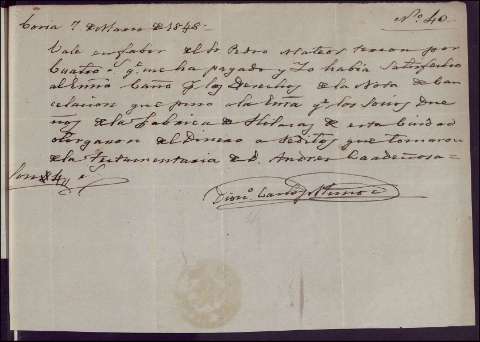 Coria 7 de Marzo de 1848 - Nº 40
Vale en fabor del Sr Pedro Mateos por
Cuatro rs qe me ha pagado y Yo habia satisfecho
los Derechos de la Nota de Can
celacion que puso a la qe los Sores Due
ños de la Fabrica de Hilaras de esta Ciudad
otorgaron del Dinero a reditos que tomaron
de la Testamentaria de D. Andres Cardeñosa =
Son 4 rs
Diono Carlos Muñoz